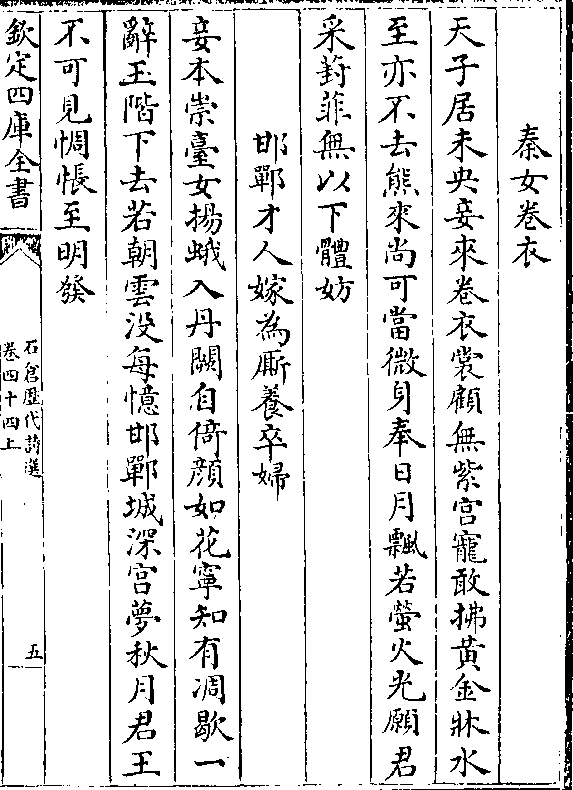 秦女卷衣
天子居未央妾來卷衣裳顧無紫宫寵敢拂黃金牀水
至亦不去熊來尚可當微身奉日月飄若螢火光願君
采葑菲無以下體妨
邯鄲才人嫁為厮養卒婦
妾本崇臺女揚蛾入丹闕自倚顔如花寧知有凋歇一
辭玉階下去若朝雲没每憶邯鄲城深宫夢秋月君王
不可見惆悵至明發
欽定四庫全書
石倉歷代詩選
卷四十四上
五